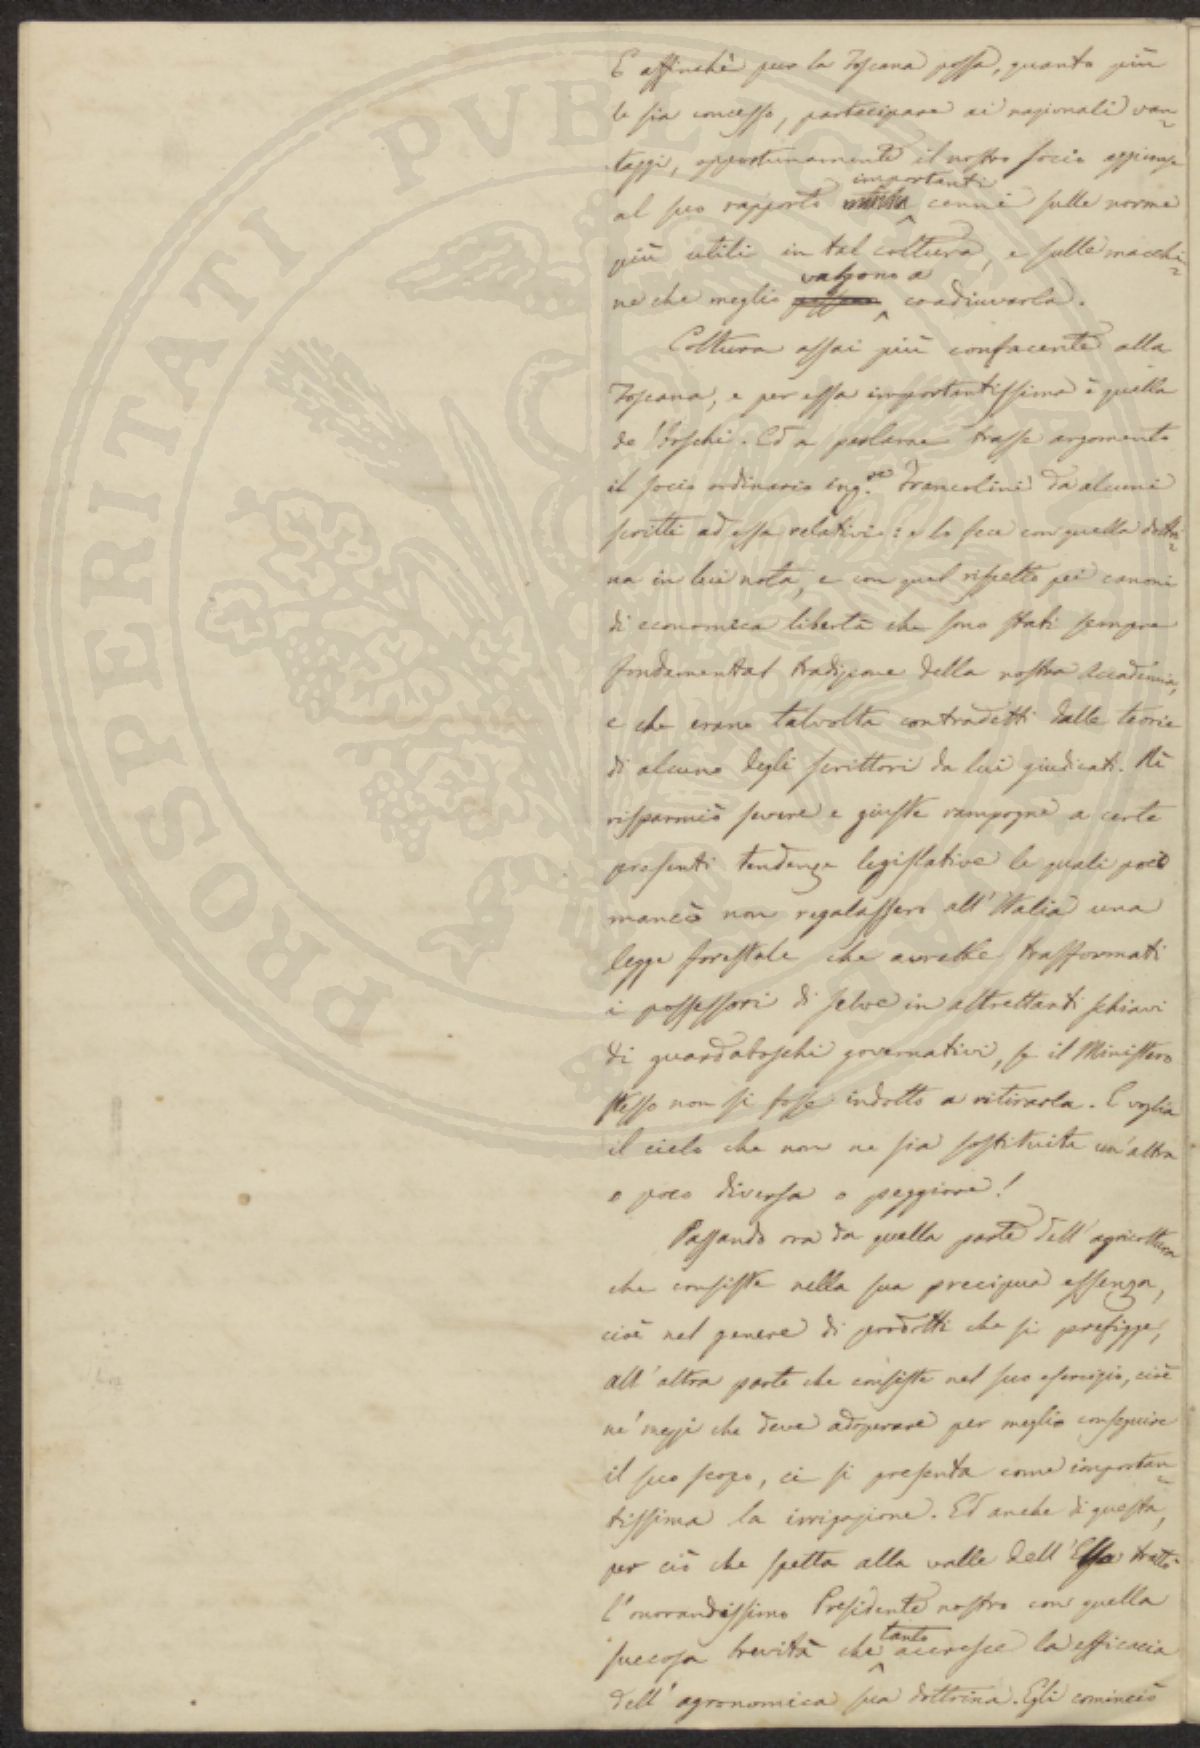 E affinchè pur la Toscana possa, quanto più
le sia concesso, partecipare ai nazionali van-
taggi, opportunamente il nostro socio aggiunse
al suo rapporto importanti cenni sulle norme
più utili in tal coltura, e sulle macchi-
ne che meglio valgono a coadiuvarla.
Coltura assai più confacente alla
Toscana, e per essa importantissima è quella
de' boschi. Ed a parlarne trasse argomento
il socio ordinario ing.re Francolini da alcuni
scritti ad essa relativi: e lo fece con quella dottri-
na in lui nota, e con quel rispetto pei canoni
di economica libertà che sono stati sempre
fondamental tradizione della nostra Accademia,
e che erano talvolta contradetti dalle teorie
di alcuno degli scrittori da lui giudicati. Nè
risparmiò severe e giuste rampogne a certe
presenti tendenze legislative le quali poco
mancò non regalassero all'Italia una
legge forestale che avrebbe trasformati
i possessori di selve in altrettanti schiavi
di guardaboschi governativi, se il Ministero
stesso non si fosse indotto a ritirarla. E voglia
il cielo che non ne sia sostituita un'altra
o poco diversa o peggiore!
Passando ora da quella parte dell'agricoltura
che consiste nella sua precipua essenza,
cioè nel genere di prodotti che si prefigge,
all'altra parte che consiste nel suo esercizio, cioè
ne' mezzi che deve adoperare per meglio conseguire
il suo scopo, ci si presenta come importan-
tissima la irrigazione. Ed anche di questa,
per ciò che spetta alla valle dell'Elsa trattò
l'onorandissimo Presidente nostro con quella
succosa brevità che tanto accresce la efficacia
dell'agronomica sua dottrina. Egli cominciò
PROSPERITATI PVBLICAE